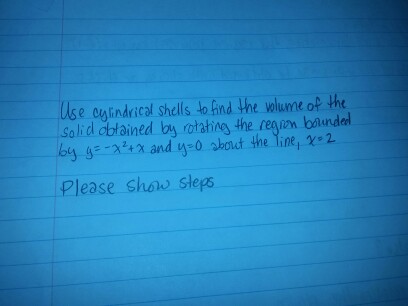 Use cylindrical shells to find the volume of the
solid obtained by rotating the region bounded
by y=-x²+x and y=0 about the line, x=2
Please show steps